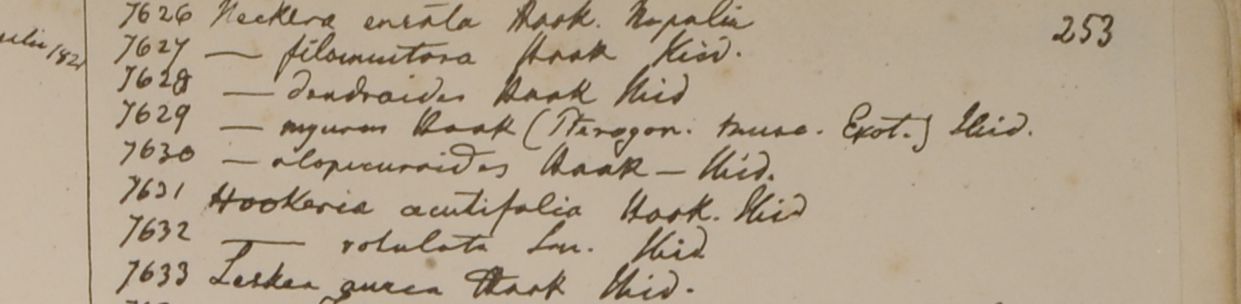 7626 Neckera Hook. Napalia
253
7627 — filamentosa Hook Ibid.
1821
7628 — dendroides Hook Ibid
7629 — myurum Hook (Pterogon. musc. Exot.) Ibid.
7630 — alopecuroides Hook — Ibid.
7631 Hookeria acutifolia Hook. Ibid
7632 — rotulata Ibid
7633 Leskea aurea Hook Ibid.